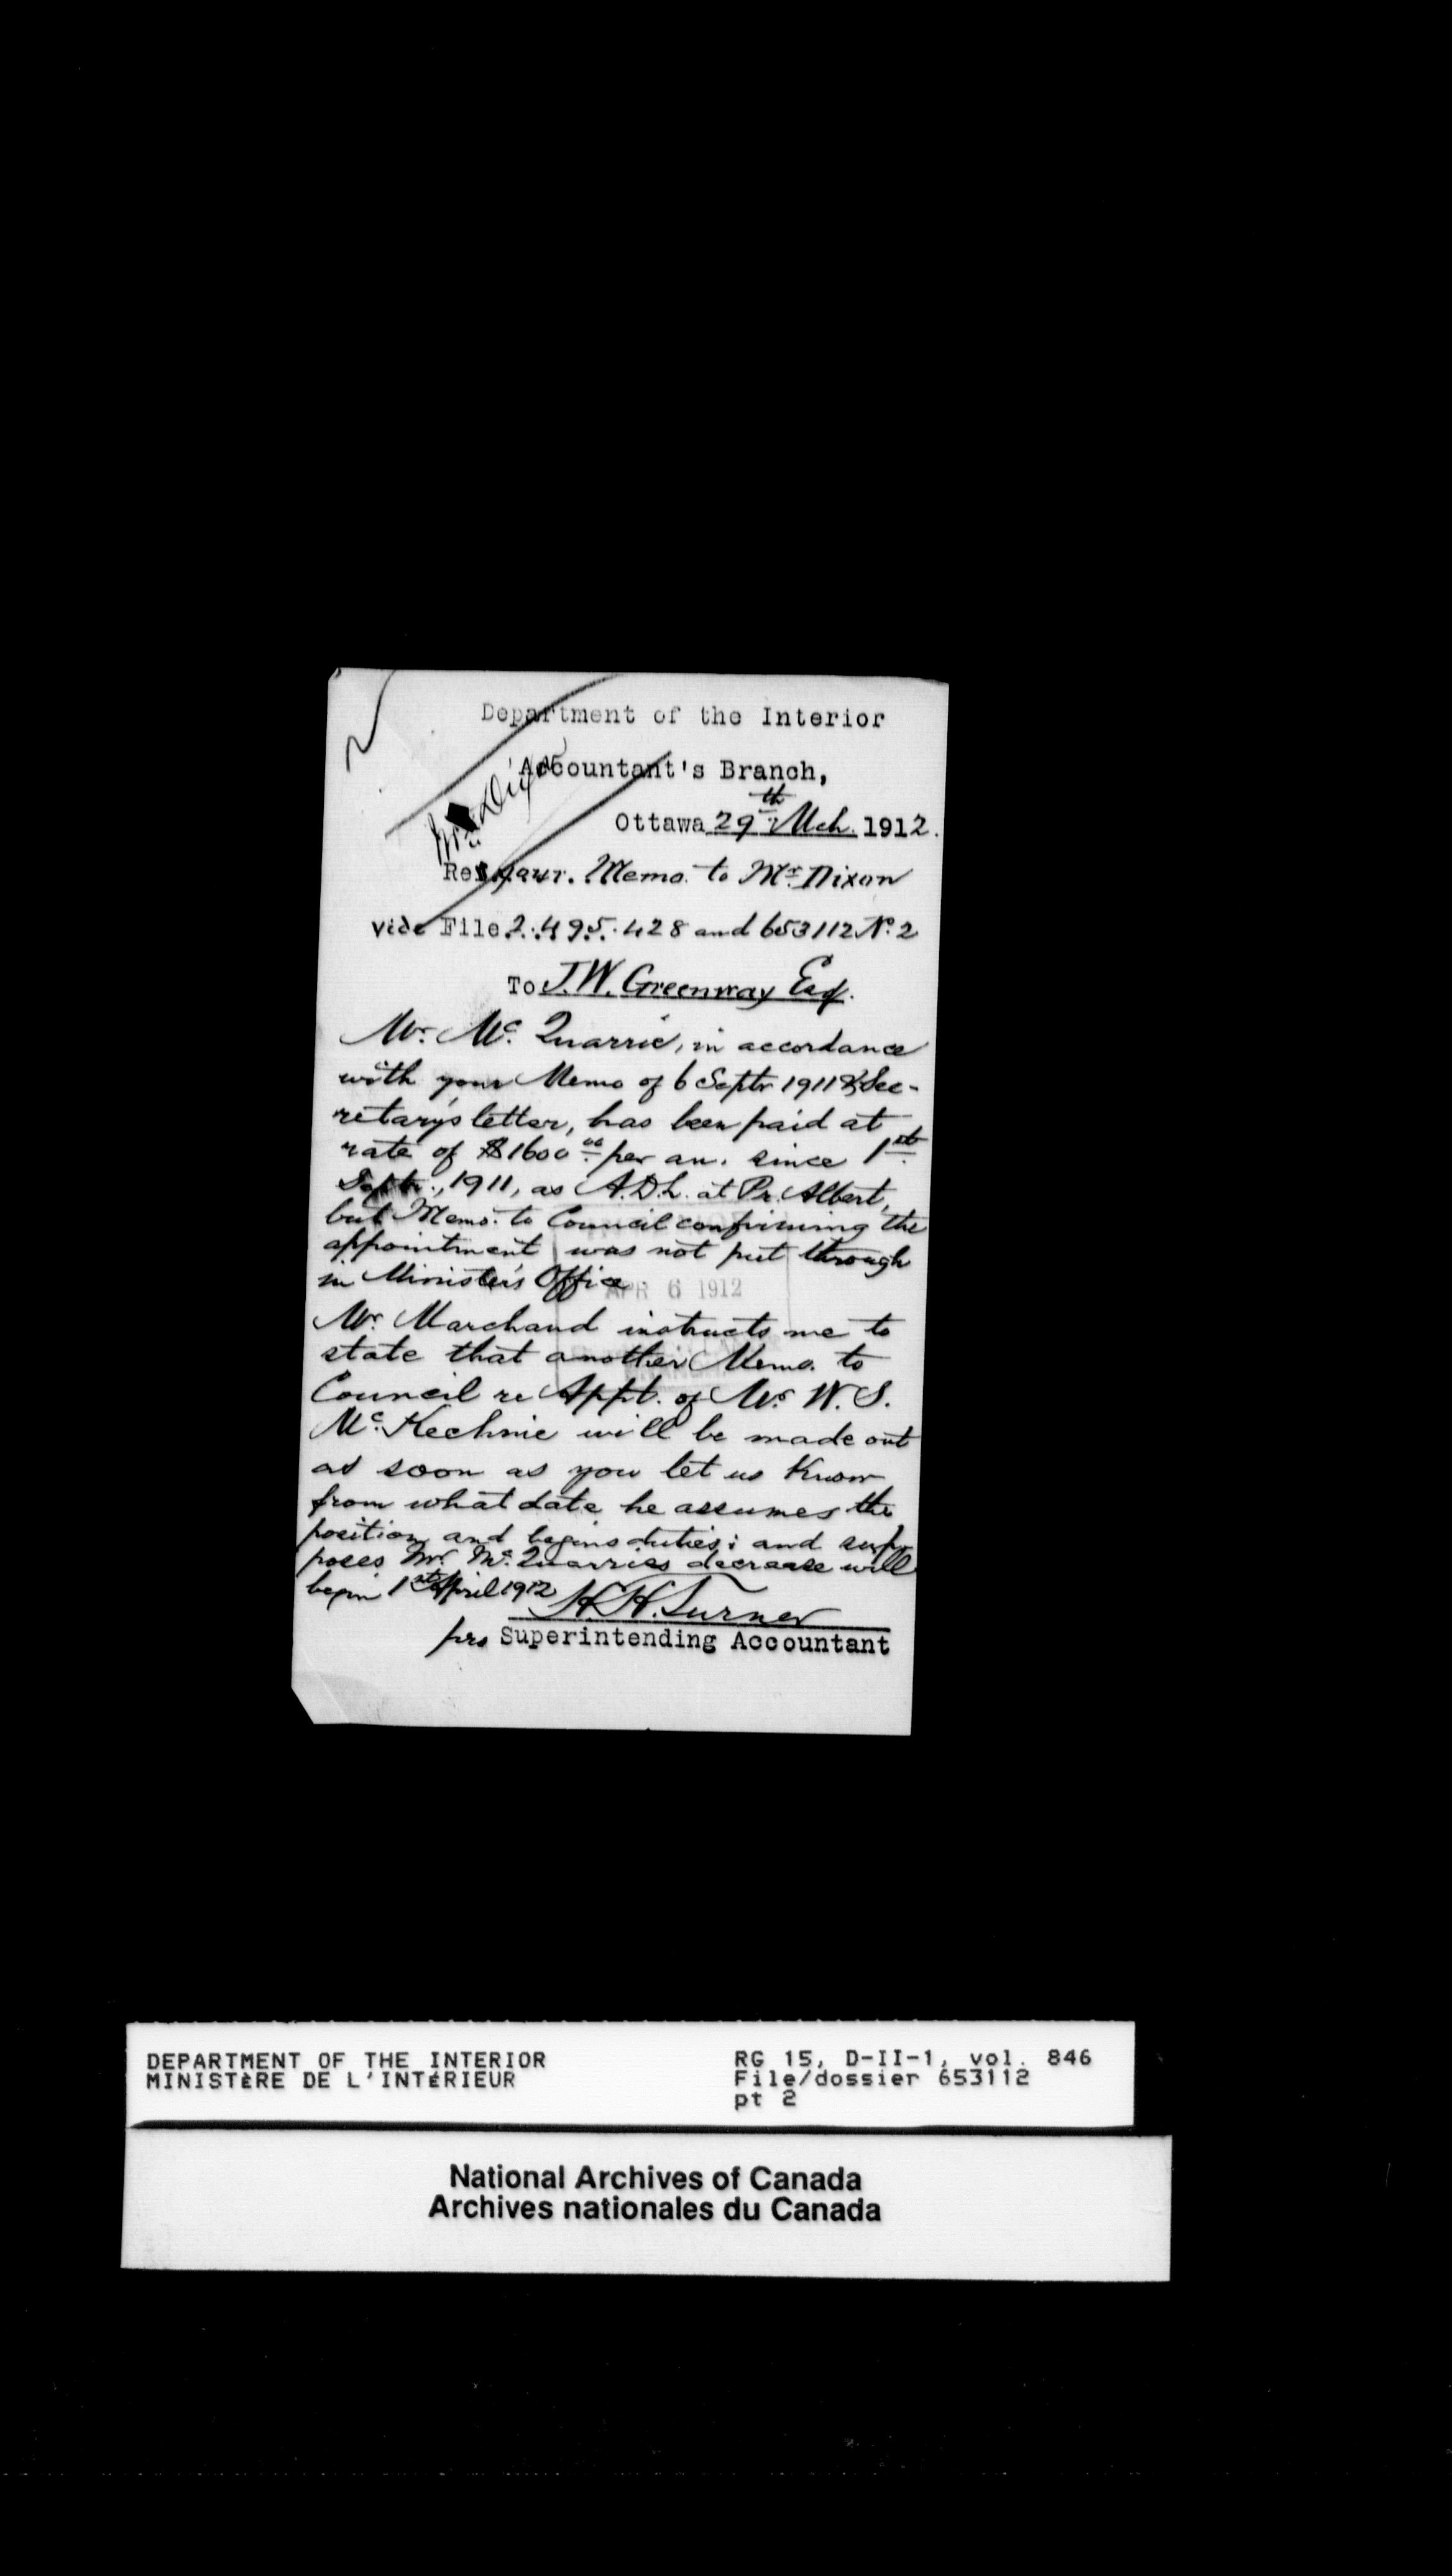 Department of the Interior
Accountant's Branch,
Ottawa 29th Mch. 1912.
Re your. Memo. to Mr. Dixon
vide File 2.495.428 and 653112 No. 2
To J.W. Greenway Esq.
Mr. Mc. Quarrie, in accordance
with your Memo of 6 Septr 1911 & Sec-
retary's letter, has been paid at
rate of $1600 00 per an. since 1st
Septr., 1911, as A.D.L. at Pr. Albert,
but Memo. to Council confirming the
appointment was not put through
in Minister's Office.
APR 6 1912
Mr. Marchand instructs me to
state that another Memo. to
Council re Appt. of Mr. W. S.
Mc. Kechnie will be made out
as soon as you let us know
from what date he assumes the
position and begins duties; and sup-
poses Mr. Mc. Quarries decrease will
begin 1st April 1912
H.H. Turner
pro Superintending Accountant
DEPARTMENT OF THE INTERIOR
MINISTÈRE DE L'INTÉRIEUR
RG 15, D-II-1, vol. 846
File/dossier 653112
pt 2
National Archives of Canada
Archives nationales du Canada